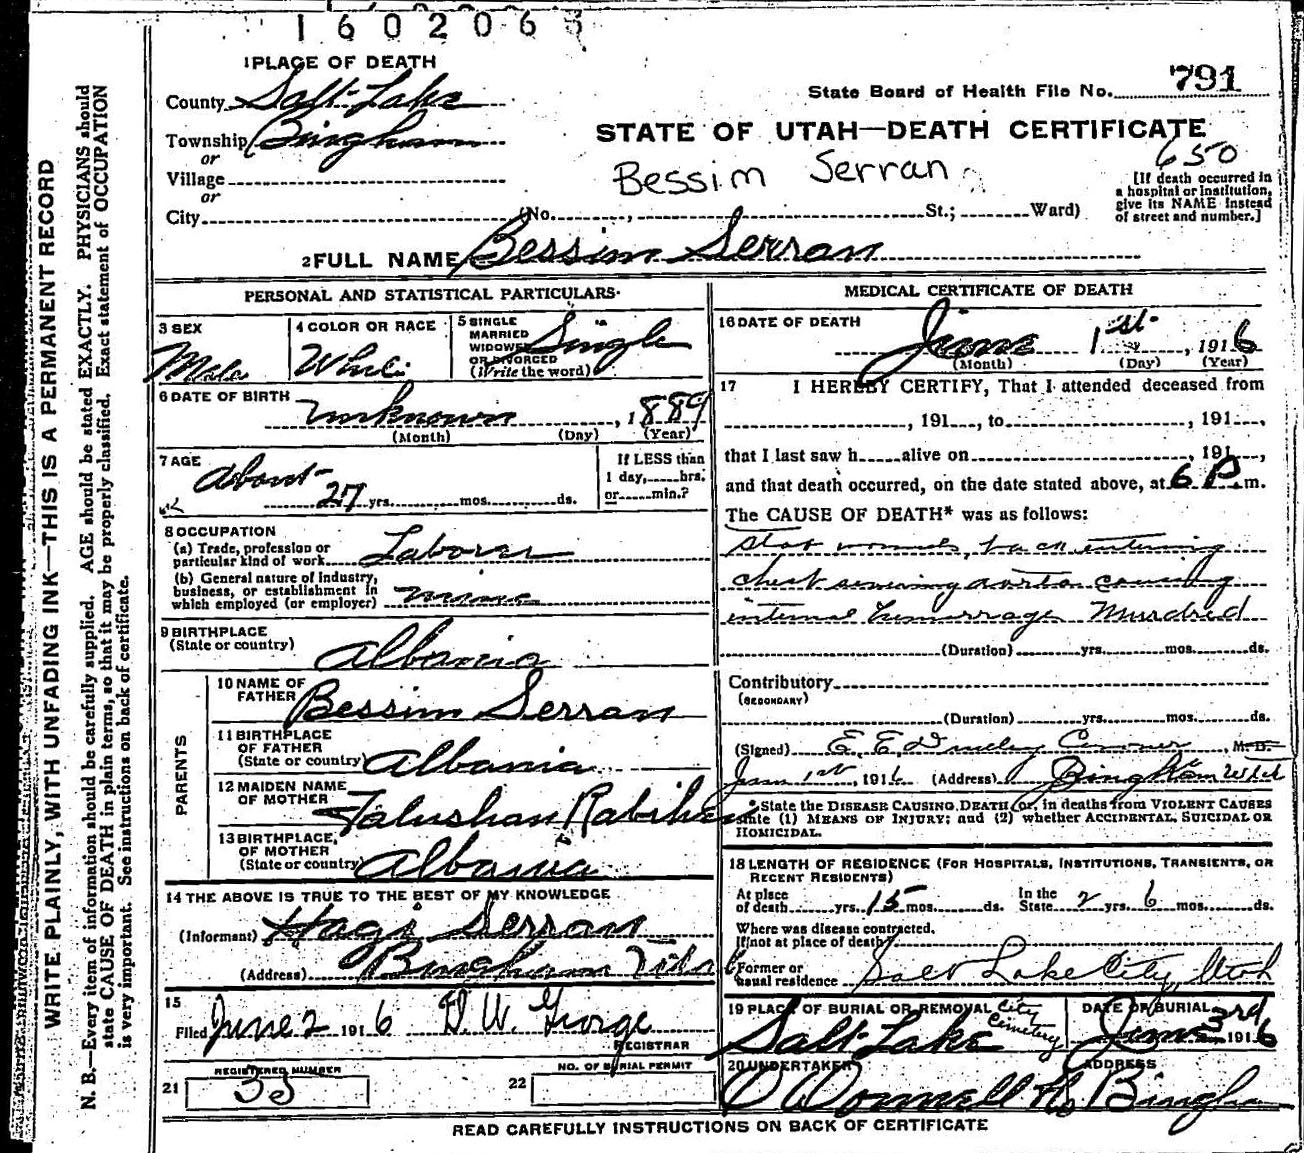 1602065
1 PLACE OF DEATH
County Salt Lake
State Board of Health File No. 791
Township Bingham
STATE OF UTAH—DEATH CERTIFICATE
or
Village
Bessim Serran
650
[If death occurred in a hospital or institution, give its NAME instead of street and number.]
or
City (No. , St.; Ward)
2 FULL NAME Bessim Serran
PERSONAL AND STATISTICAL PARTICULARS
3 SEX
Male
4 COLOR OR RACE
White
5 SINGLE
MARRIED
WIDOWED
OR DIVORCED
(Write the word)
Single
6 DATE OF BIRTH
Unknown , 1889
(Month) (Day) (Year)
7 AGE
About 27 yrs. mos. ds.
If LESS than
1 day, hrs.
or min.?
8 OCCUPATION
(a) Trade, profession or
particular kind of work Laborer
(b) General nature of industry,
business, or establishment in
which employed (or employer) mine
9 BIRTHPLACE
(State or country) Albania
PARENTS
10 NAME OF
FATHER Bessim Serran
11 BIRTHPLACE
OF FATHER
(State or country) Albania
12 MAIDEN NAME
OF MOTHER Falushan
13 BIRTHPLACE
OF MOTHER
(State or country) Albania
14 THE ABOVE IS TRUE TO THE BEST OF MY KNOWLEDGE
(Informant) Hagi Serran
(Address) Bingham Utah
15
Filed June 2 1916 D. W. George
REGISTRAR
21 REGISTERED NUMBER
22 NO. OF BURIAL PERMIT
MEDICAL CERTIFICATE OF DEATH
16 DATE OF DEATH
June 1st , 1916
(Month) (Day) (Year)
17 I HEREBY CERTIFY, That I attended deceased from
, 191 , to , 191 ,
that I last saw h alive on , 191 ,
and that death occurred, on the date stated above, at 6 P m.
The CAUSE OF DEATH* was as follows:
Stab wounds, back entering
chest severing aorta causing
internal hemorrage Murdred
(Duration) yrs. mos. ds.
Contributory
(SECONDARY)
(Duration) yrs. mos. ds.
(Signed) E. E. Coroner , M.D.
June 1st, 1916 (Address) Bingham Utah
*State the DISEASE CAUSING DEATH or, in deaths from VIOLENT CAUSES
state (1) MEANS OF INJURY; and (2) whether ACCIDENTAL, SUICIDAL OR
HOMICIDAL.
18 LENGTH OF RESIDENCE (FOR HOSPITALS, INSTITUTIONS, TRANSIENTS, OR
RECENT RESIDENTS)
At place
of death yrs. 15 mos. ds.
In the
State 2 yrs. 6 mos. ds.
Where was disease contracted.
If not at place of death?
Former or
usual residence Salt Lake City, Utah
19 PLACE OF BURIAL OR REMOVAL
Salt Lake City Cemetery
DATE OF BURIAL
June 3rd 1916
20 UNDERTAKER
O'Donnell Co
ADDRESS
Bingham
READ CAREFULLY INSTRUCTIONS ON BACK OF CERTIFICATE
WRITE PLAINLY, WITH UNFADING INK—THIS IS A PERMANENT RECORD
N. B.—Every item of information should be carefully supplied. AGE should be stated EXACTLY. PHYSICIANS should
state CAUSE OF DEATH in plain terms, so that it may be properly classified. Exact statement of OCCUPATION
is very important. See instructions on back of certificate.